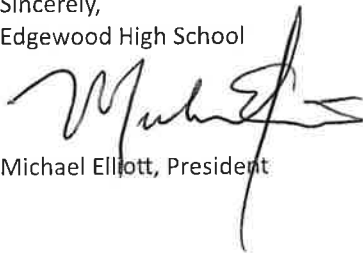 Sincerely,
Edgewood High School
Michael Elliott, President